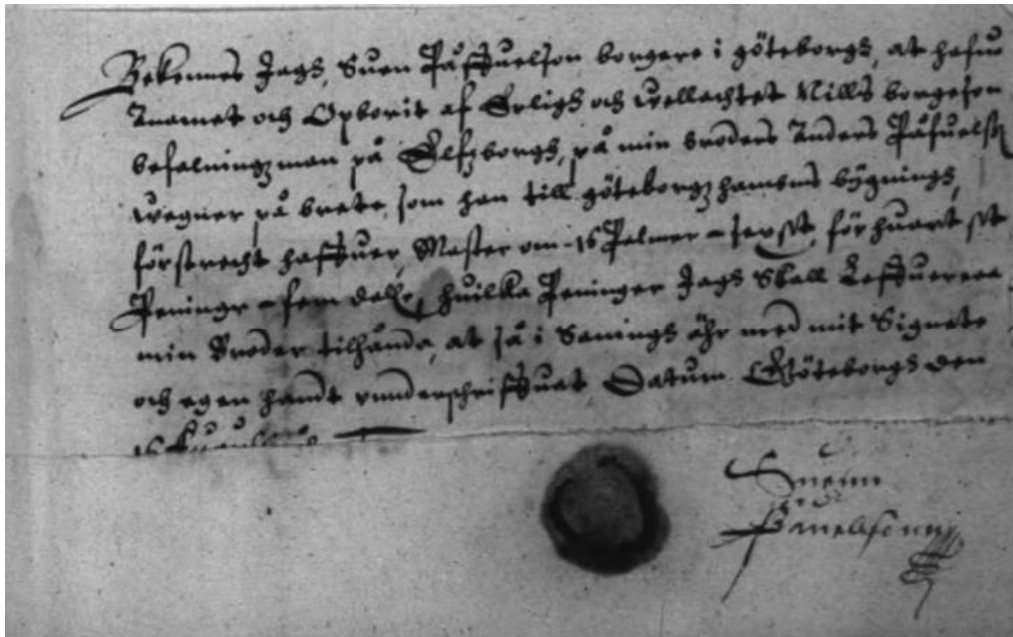 Bekennes Jagh, Suen Påffuelson borgere i göteborgh, at hafuo
Anamet och Opborit af Erligh och wellachtet Nills borgeson
befalningzman på Elfzborgh, på min broders Anders Påfuelss
wegner på brete, som han till göteborgz hamens bÿgningh,
förstrecht haffuer, Master om 16 Palmer, för huart st
Peningr fem daler, huilka Peninger Jagh skall Leffuerera
min Broder tilhånda, at så i Sanningh ähr med mit Signete
och egen handt vnnderschriffuat Datum Götheborgh den
16
Suenn
Påuelsonn